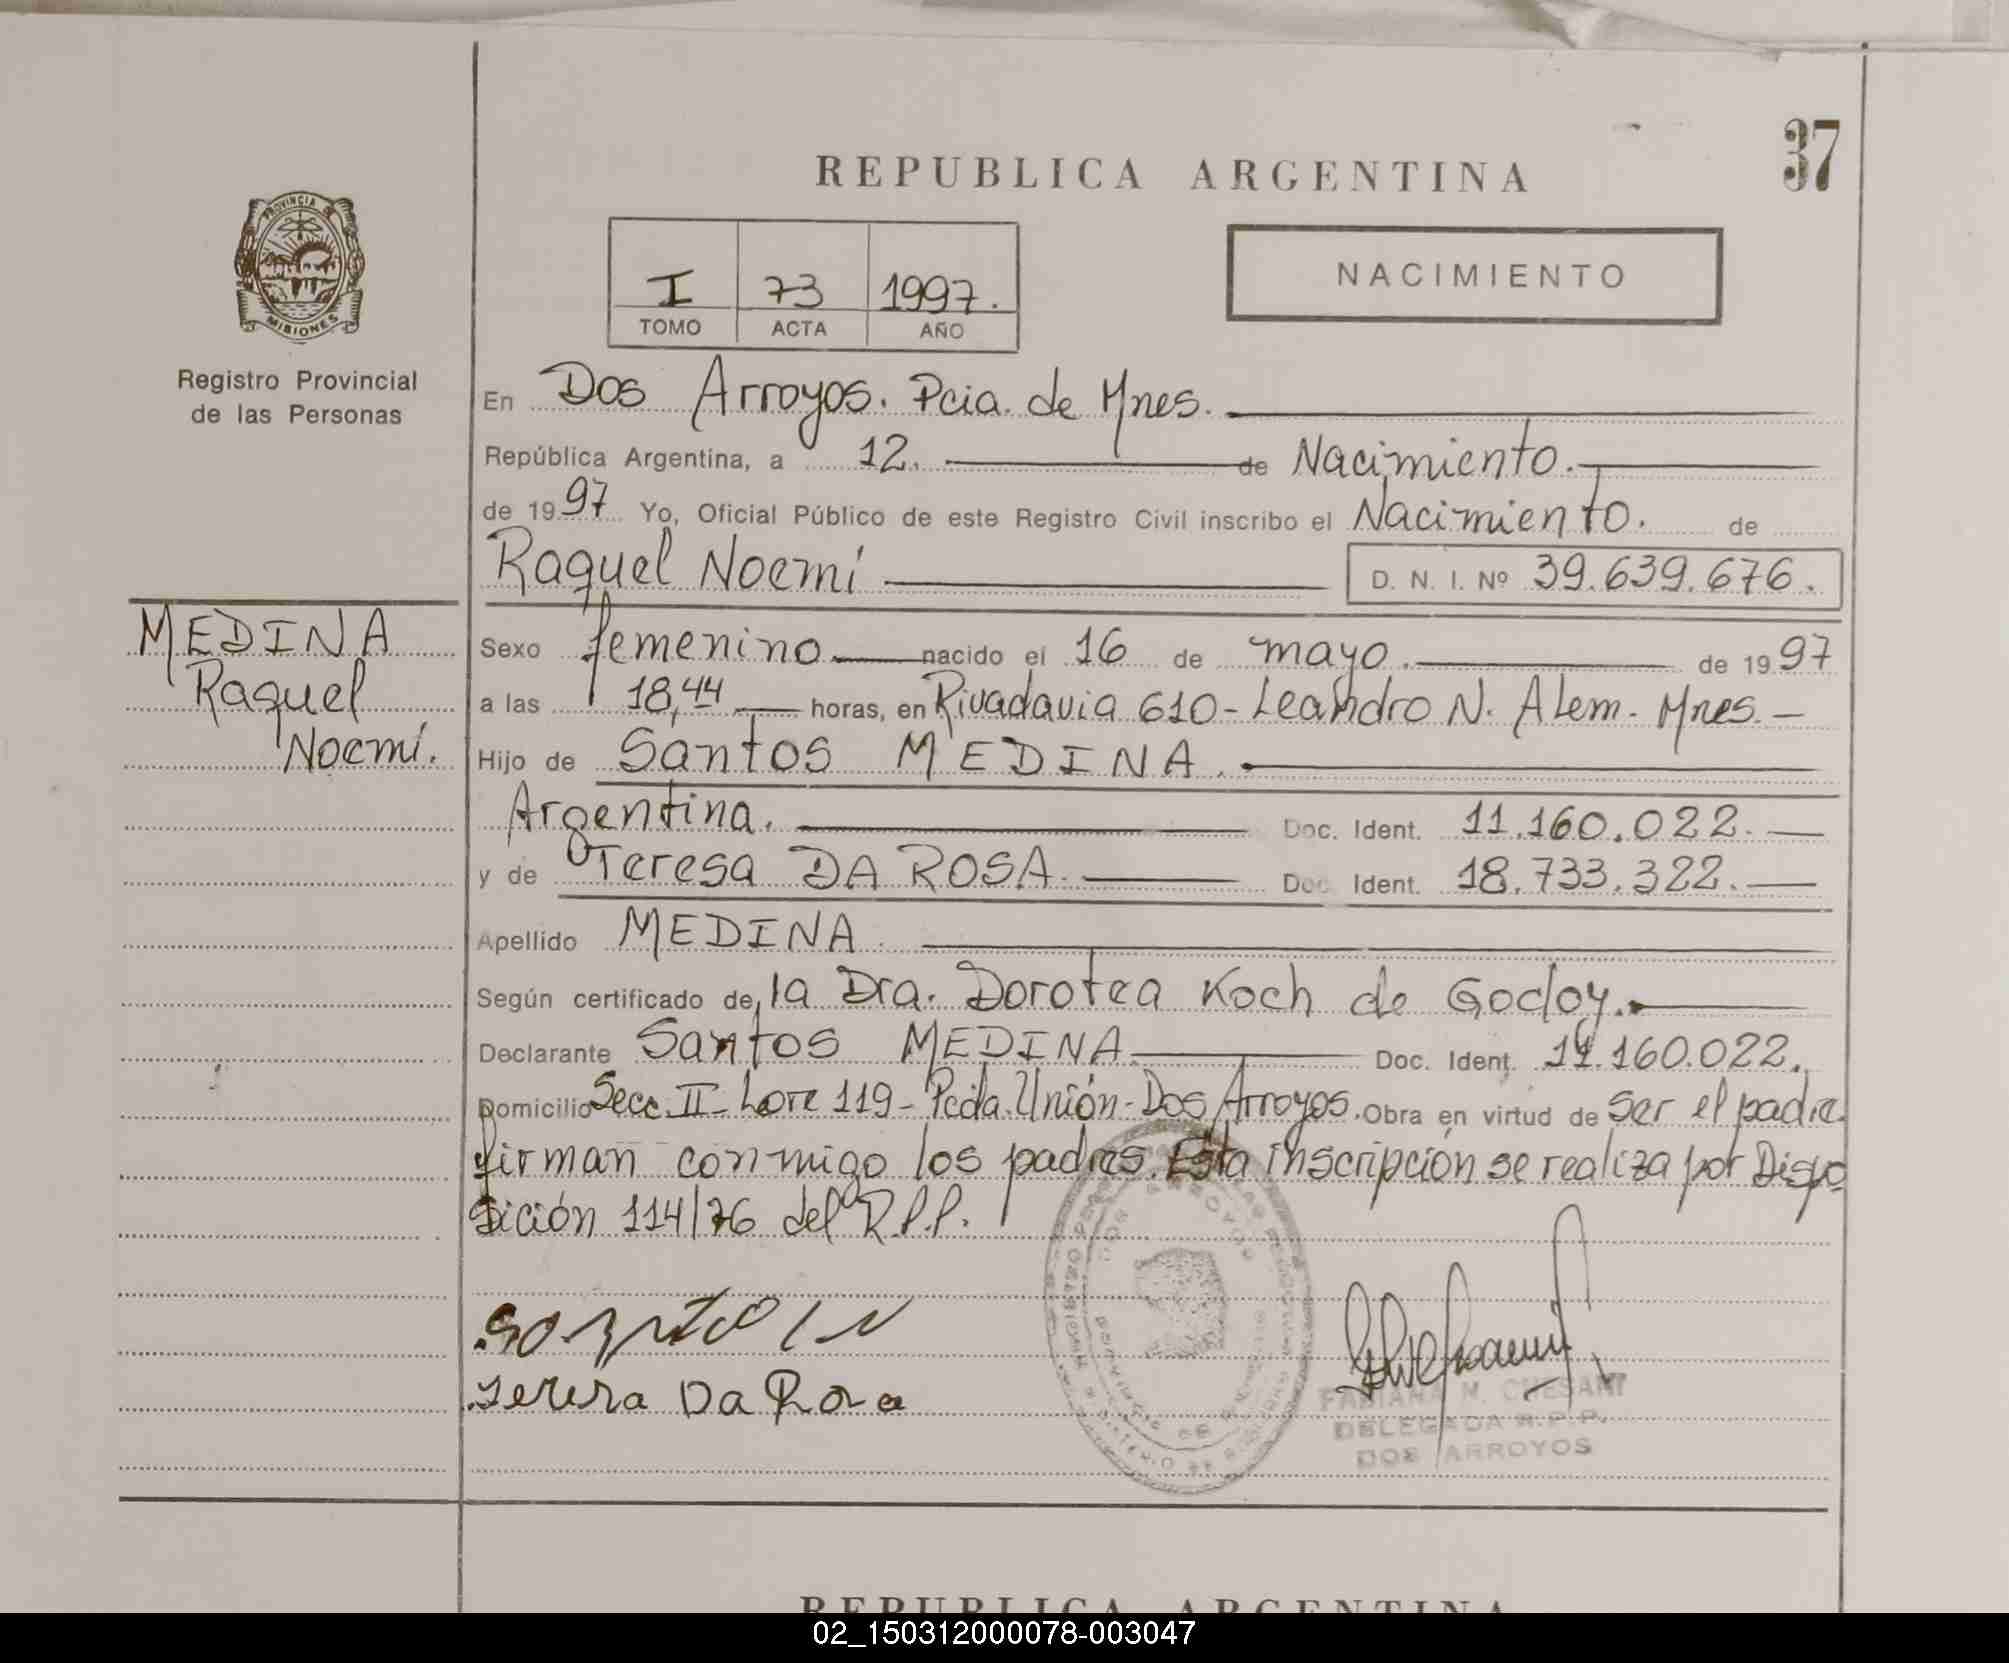 37
REPUBLICA ARGENTINA
PROVINCIA DE
MISIONES
Registro Provincial
de las Personas
I 73 1997.
TOMO ACTA AÑO
NACIMIENTO
En Dos Arroyos. Pcia. de Mnes.
República Argentina, a 12. de Nacimiento.
de 1997 Yo, Oficial Público de este Registro Civil inscribo el Nacimiento. de
Raquel Noemí D. N. I. Nº 39.639.676.
MEDINA
Raquel
Noemí.
Sexo femenino nacido el 16 de mayo. de 1997
a las 18,44 horas, en Rivadavia 610-Leandro N. Alem. Mnes.-
Hijo de Santos MEDINA.
Argentina. Doc. Ident. 11.160.022.
y de Teresa DA ROSA. Doc. Ident. 18.733.322.
Apellido MEDINA
Según certificado de la Dra. Dorotea Koch de Godoy.
Declarante Santos MEDINA. Doc. Ident. 11.160.022.
Domicilio Secc. II- Lote 119- Pcda. Unión-Dos Arroyos. Obra en virtud de ser el padre.
firman conmigo los padres. Esta inscripción se realiza por Dispo
sición 114/76 del R.P.P.
Teresa Da Rosa
DOS ARROYOS
FABIANA M. CHESANI
DELEGADA R.P.P.
DOS ARROYOS
REPUBLICA ARGENTINA
02_150312000078-003047